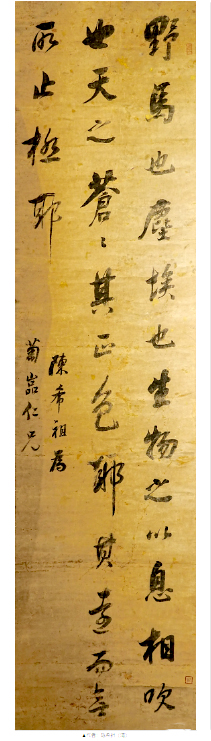 野馬也塵埃也生物之以息相吹
也天之蒼〻其正色耶其遠而無
所止極耶
陳希祖為
菊嵓仁兄